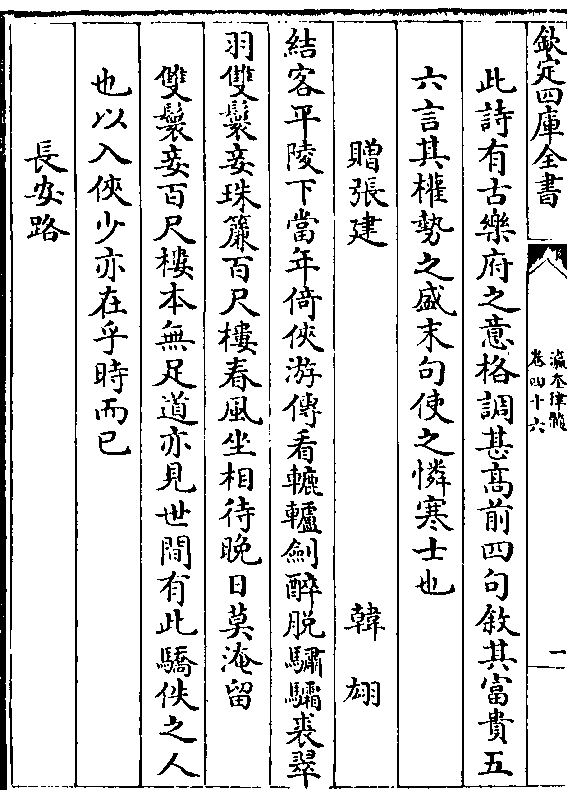 欽定四庫全書
瀛奎律髓
卷四十六
一
此詩有古樂府之意格調甚髙前四句敘其富貴五
六言其權勢之盛末句使之憐寒士也
贈張建 韓翃
結客平陵下當年倚俠游傳看轆轤劍醉脱驌驦裘翠
羽雙鬟妾珠簾百尺樓春風坐相待晚日莫淹留
雙鬟妾百尺樓本無足道亦見世間有此驕佚之人
也以入俠少亦在乎時而已
長安路